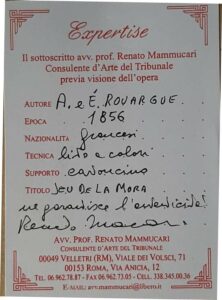 Expertise
Il sottoscritto avv. prof. Renato Mammucari
Consulente d'Arte del Tribunale
previa visione dell'opera
AUTORE A. e É. ROUARGUE
EPOCA 1856
NAZIONALITÀ francesi
TECNICA lito a colori
SUPPORTO cartoncino
TITOLO JEU DE LA MORA
ne garantisce l'autenticità!
AVV. PROF. RENATO MAMMUCARI
CONSULENTE D'ARTE DEL TRIBUNALE
00049 VELLETRI (RM), VIALE DEI VOLSCI, 61
00153 ROMA, VIA ANICIA, 12
TEL. 06.962.78.87 - FAX 06.962.73.05 - CELL. 338.345.00.36
E-MAIL: avv.mammucari@libero.it